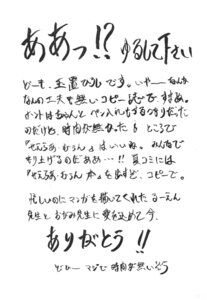 ああっ!? ゆるして下さい
どーも、玉置びんです。いやーなんか
なんの工夫も無いコピー誌ですね。
ホントはちゃんとペン入れもするつもりだった
のだけど、時間が無かった。ところで
「せえるあ・むうん」はいいね。みんなで
もり上げるのだああ…!! 夏コミには
「せえるあ・むうん本」を出すぞ、コピーで。
忙しいのにマンガを描いてくれたるーえん
先生とおがみ先生に愛を込めて今、
ありがとう!!
マジで時間が無いぞう